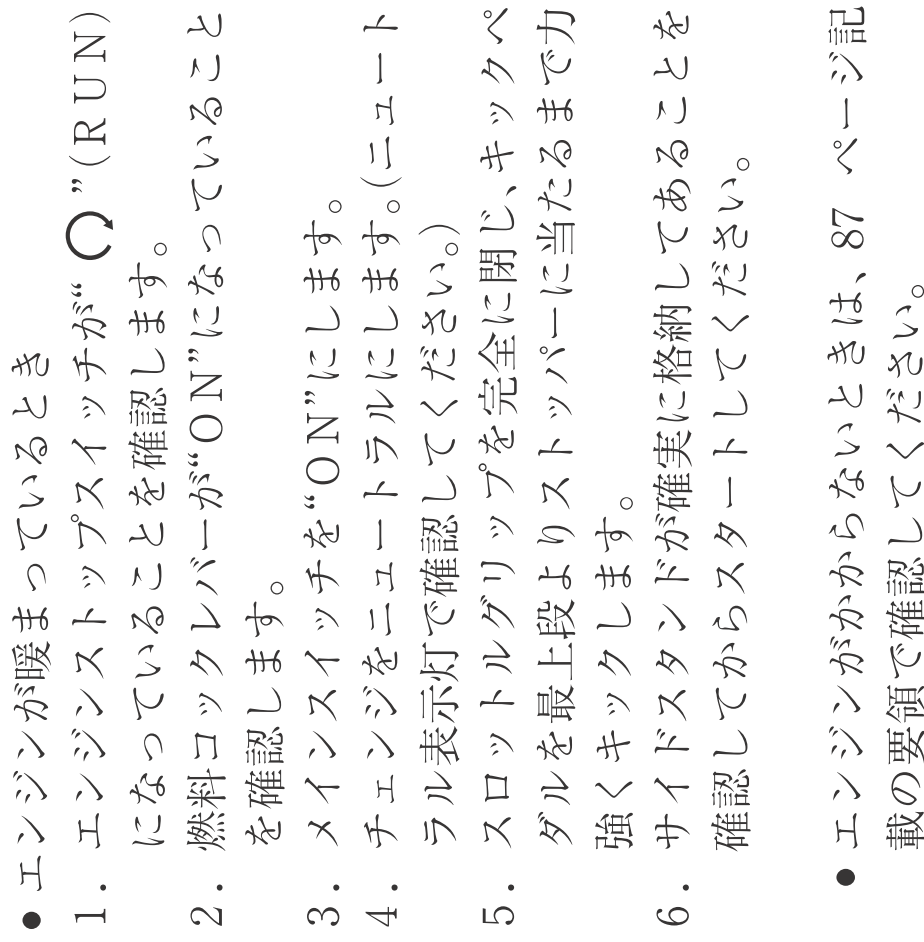 ● エンジンが暖まっているとき
1. エンジンストップスイッチが“ ”(RUN)
になっていることを確認します。
2. 燃料コックレバーが“ON”になっていること
を確認します。
3. メインスイッチを“ON”にします。
4. チェンジをニュートラルにします。(ニュート
ラル表示灯で確認してください。)
5. スロットルグリップを完全に閉じ、キックペ
ダルを最上段よりストッパーに当たるまで力
強くキックします。
6. サイドスタンドが確実に格納してあることを
確認してからスタートしてください。
● エンジンがかからないときは、87 ページ記
載の要領で確認してください。